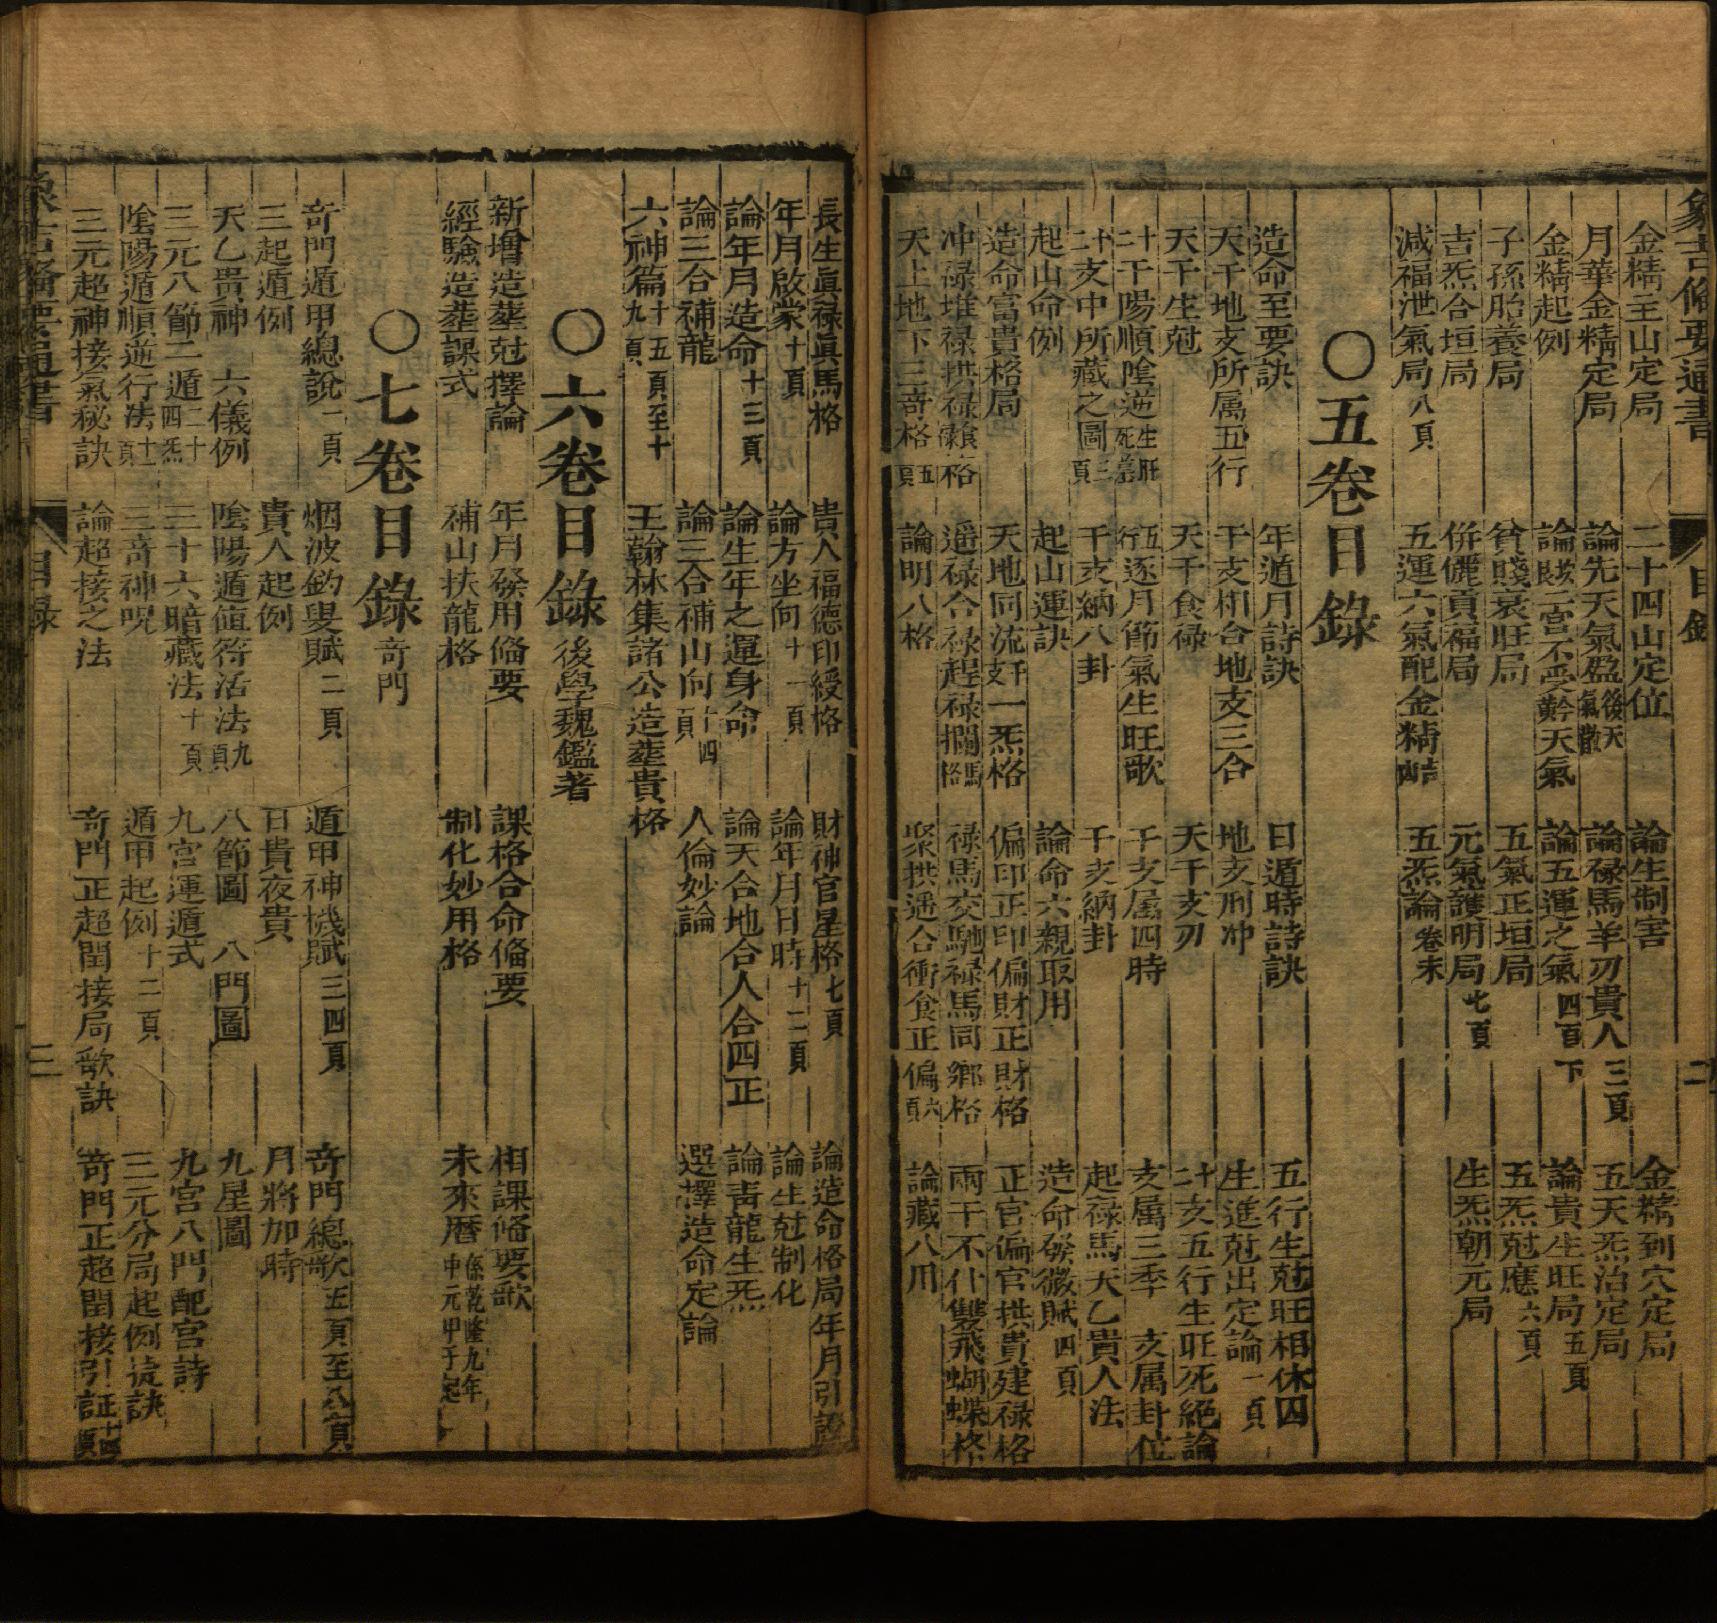 象吉備要通書 目錄 二
金精主山定局 二十四山定位 論生制害 金精到穴定局
月華金精定局 論先天氣盈後天氣散 論禄馬羊刃貴人三頁 五天炁治定局
金精起例 論五運之氣四頁下 論貴生旺局五頁
子孫胎養局 貧賤衰旺局 五氣正垣局 五炁尅應六頁
吉炁合垣局 併儷貢福局 元氣護明局七頁 生炁朝元局
減福泄氣局八頁 五運六氣配金精 五炁論卷末
〇五卷目錄
造命至要訣 年遁月詩訣 日遁時詩訣 五行生尅旺相休囚
天干地支所属五行 干支相合地支三合 地支刑冲 生進尅出定論一頁
天干生尅 天干食禄 天干支刃 十二支五行生旺死絕論
十干陽順陰逆生旺死墓 五行逐月節氣生旺歌 干支属四時 支属三季 支属卦位
十二支中所藏之圖三頁 干支納八卦 干支納卦 起禄馬天乙貴人法
起山命例 起山運訣 論命六親取用 造命發微賦四頁
造命富貴格局 天地同流歼一炁格 偏印正印偏財正財格 正官偏官拱貴建禄格
冲禄堆禄拱禄懶格 遥禄合禄趕禄攔馬格 禄馬交馳禄馬同鄉格 兩干不什雙飛蝴蝶格
天上地下三奇格五頁 論明八格 聚拱遥合衝食正偏六頁 論藏八用
長生眞禄眞馬格 貴人福德印綬格 財神官星格七頁 論造命格局年月引證
年月啟蒙十頁 論方坐向十一頁 論年月日時十二頁 論生尅制化
論年月造命十三頁 論生年之運身命 論天合地合人合四正 論青龍生炁
論三合補龍 論三合補山向十四頁 人倫妙論 選擇造命定論
六神篇十五頁至十九頁 王翰林集諸公造塟貴格
〇六卷目錄 後學魏鑑著
新增造塟尅擇論 年月發用俻要 課格合命俻要 相課俻要歌
經驗造塟課式 補山扶龍格 制化妙用格 未來曆
〇七卷目錄 奇門
奇門遁甲總說一頁 烟波釣叟賦二頁 遁甲神機賦三四頁 奇門總歌五頁至八頁
三起遁例 貴人起例 日貴夜貴 月將加時
天乙貴神 六儀例 陰陽遁値符活法九頁 八節圖 八門圖 九星圖
三元八節二遁二十四炁 三十六暗藏法十頁 九宮運遁式 九宮八門配宮詩
陰陽遁順逆行法十一頁 三奇神呪 遁甲起例十二頁 三元分局起例徒訣
三元超神接氣秘訣 論超接之法 奇門正超閏接局歌訣 奇門正超閏接引証十四頁
象吉備要通書 目錄 三